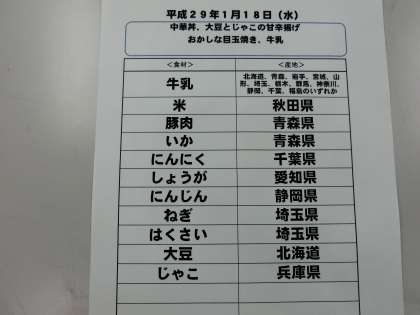 平成２９年１月１８日（水）
中華丼、大豆とじゃこの甘辛揚げ
おかしな目玉焼き、牛乳
＜食材＞ ＜産地＞
牛乳 北海道、青森、岩手、宮城、山形、埼玉、栃木、群馬、神奈川、静岡、千葉、福島のいずれか
米 秋田県
豚肉 青森県
いか 青森県
にんにく 千葉県
しょうが 愛知県
にんじん 静岡県
ねぎ 埼玉県
はくさい 埼玉県
大豆 北海道
じゃこ 兵庫県